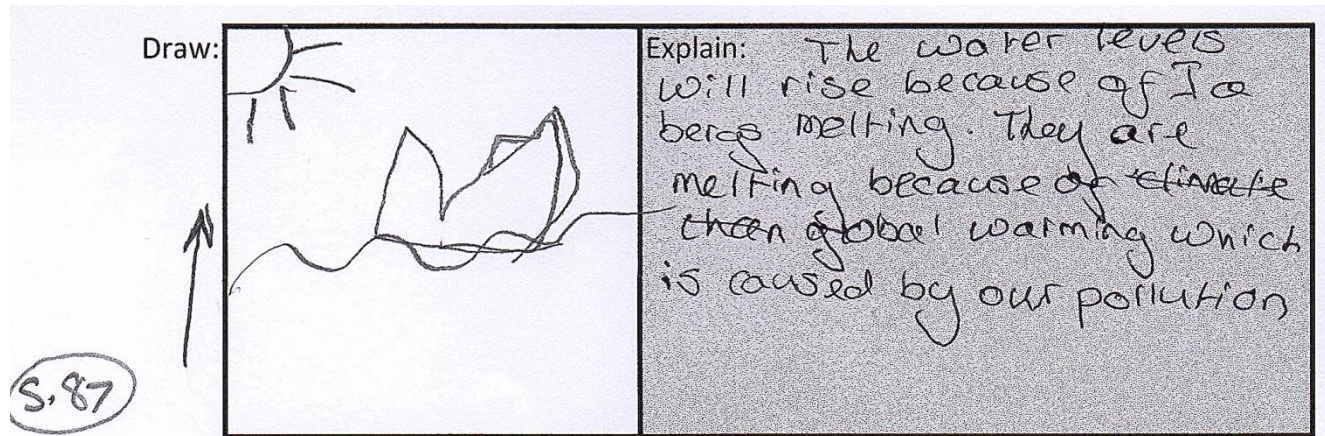 Draw:
Explain: The water levels
will rise because of Ice
bergs melting. They are
melting because of climate
then global warming which
is caused by our pollution
S.87